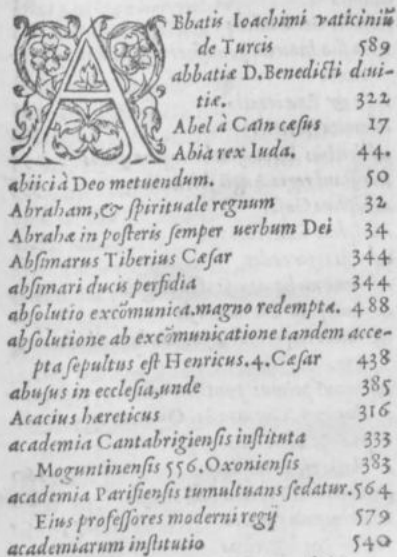 ABbatis Ioachimi vaticiniũ
de Turcis 589
abbatiæ D.Benedicti diui-
tiæ. 322
Abel à Cain cæsus 17
Abia rex Iuda. 44.
abiici à Deo metuendum. 50
Abraham,& spirituale regnum 32
Abrahæ in posteris semper uerbum Dei 34
Absimarus Tiberius Cæsar 344
absimari ducis perfidia 344
absolutio excõmunica.magno redempta. 488
absolutione ab excõmunicatione tandem acce-
pta sepultus est Henricus.4.Cæsar 438
abusus in ecclesia,unde 385
Acacius hæreticus 316
academia Cantabrigiensis instituta 333
Moguntinensis 556.Oxoniensis 383
academia Parisiensis tumultuans sedatur.564
Eius professores moderni regij 579
academiarum institutio 540